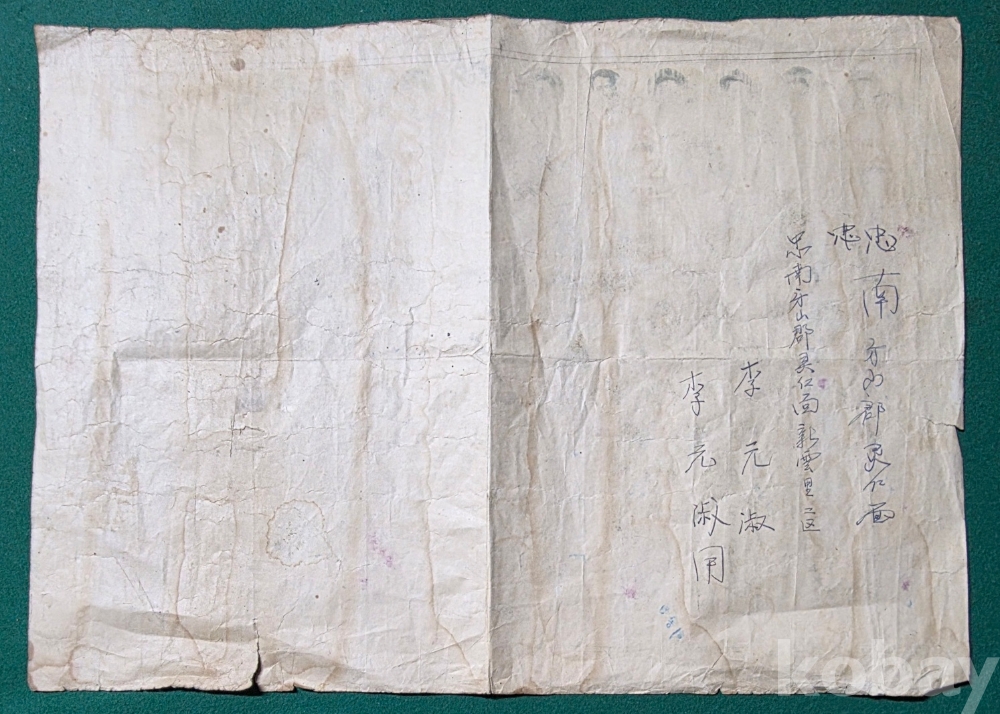 忠南牙山郡灵仁面
忠
忠南牙山郡灵仁面新雲里二区
李元淑
李元淑用
kobay